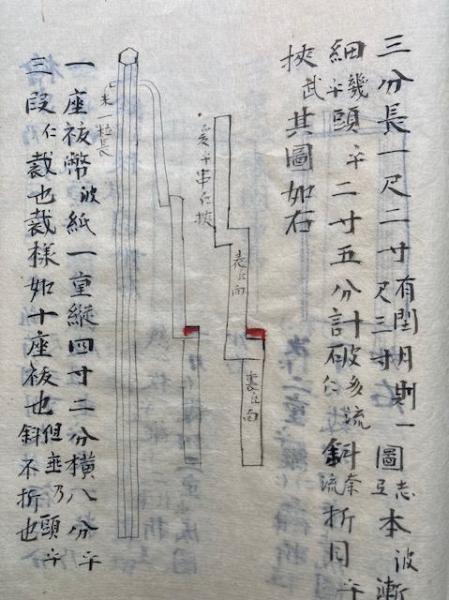 三分長一尺二寸有閏月則一尺三寸圖志互本波漸
細幾乎頭乎二寸五分計斜奈流折目乎
挾武其圖如右
爰乎串仁挾
表仁向
裏仁向
米一粒長
一座祓幣波紙一重縱四寸二分横八分乎
三段仁裁也裁様如十座祓也但垂乃頭乎斜不折也